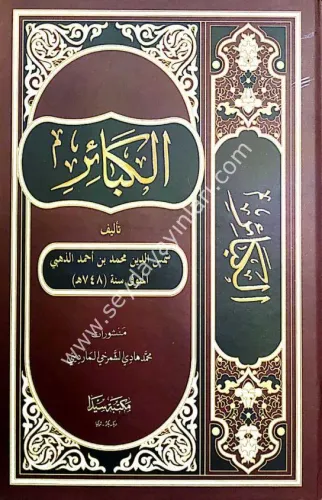 الكبائر
تأليف
شمس الدين محمد بن أحمد الذهبي
المتوفى سنة (٧٤٨ھ)
منشورات
محمد هادي الشمرخي المارديني
مكتبة سيدا
الكبائر
www.seydayayinlari.com